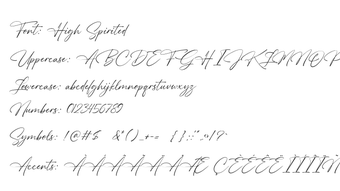 Font: High Spirited
Uppercase: ABCDEFGHIJKLMNOP
Lowercase: abcdefghijklmnopqrstuvwxyz
Numbers: 0123456789
Symbols: !@#$ &*()_+-=
Accents: ÀÁÂÃÄÅÆ ÇÈÉÊË ÌÍÎÏ